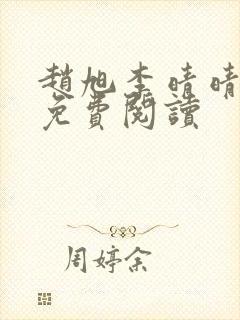 趙旭李晴晴
免費閱讀
周婷余